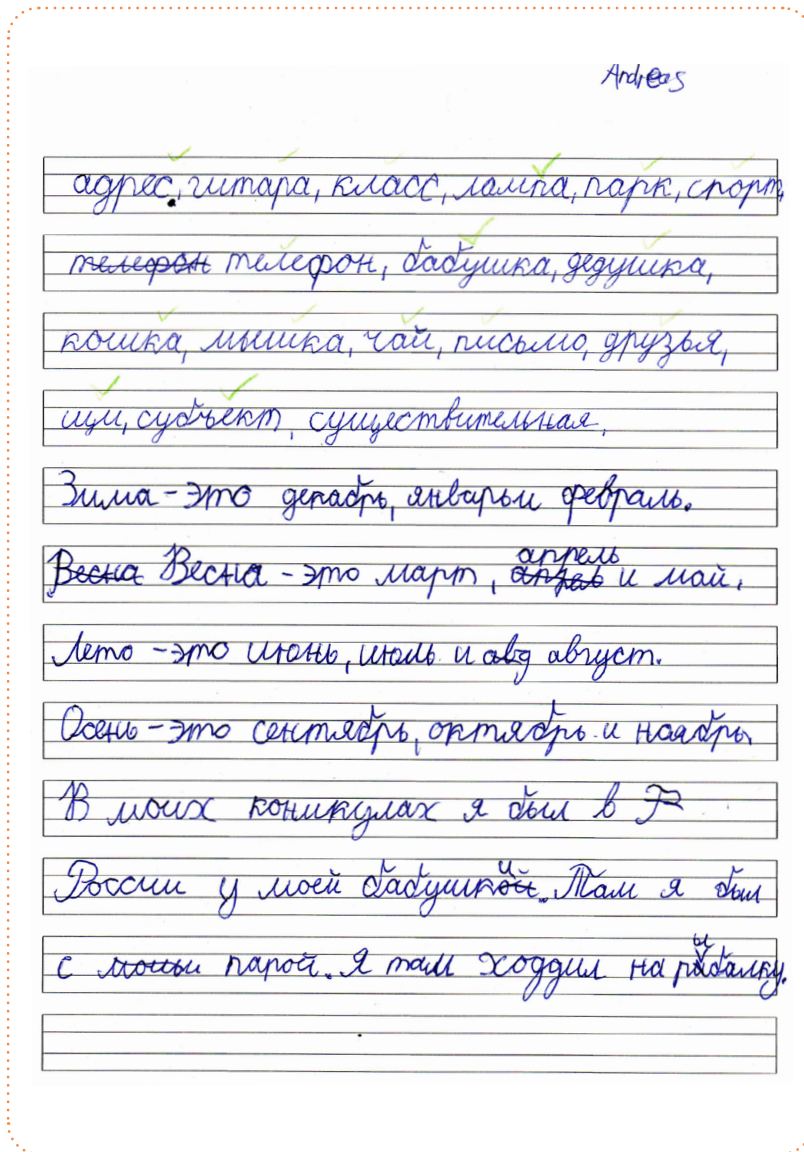 Andreas
адрес, гитара, класс, лампа, парк, спорт,
телефон телефон, бабушка, дедушка,
кошка, мышка, чай, письмо, друзья,
щи, субъект, существительная.
Зима – это декабрь, январь и февраль.
Весна Весна – это март, апрель и май.
Лето – это июнь, июль и авд август.
Осень – это сентябрь, октябрь и ноябрь
В моих коникулах я был в
России у моей бабушки. Там я был
с парой. Я там ходдил на рыбалку.